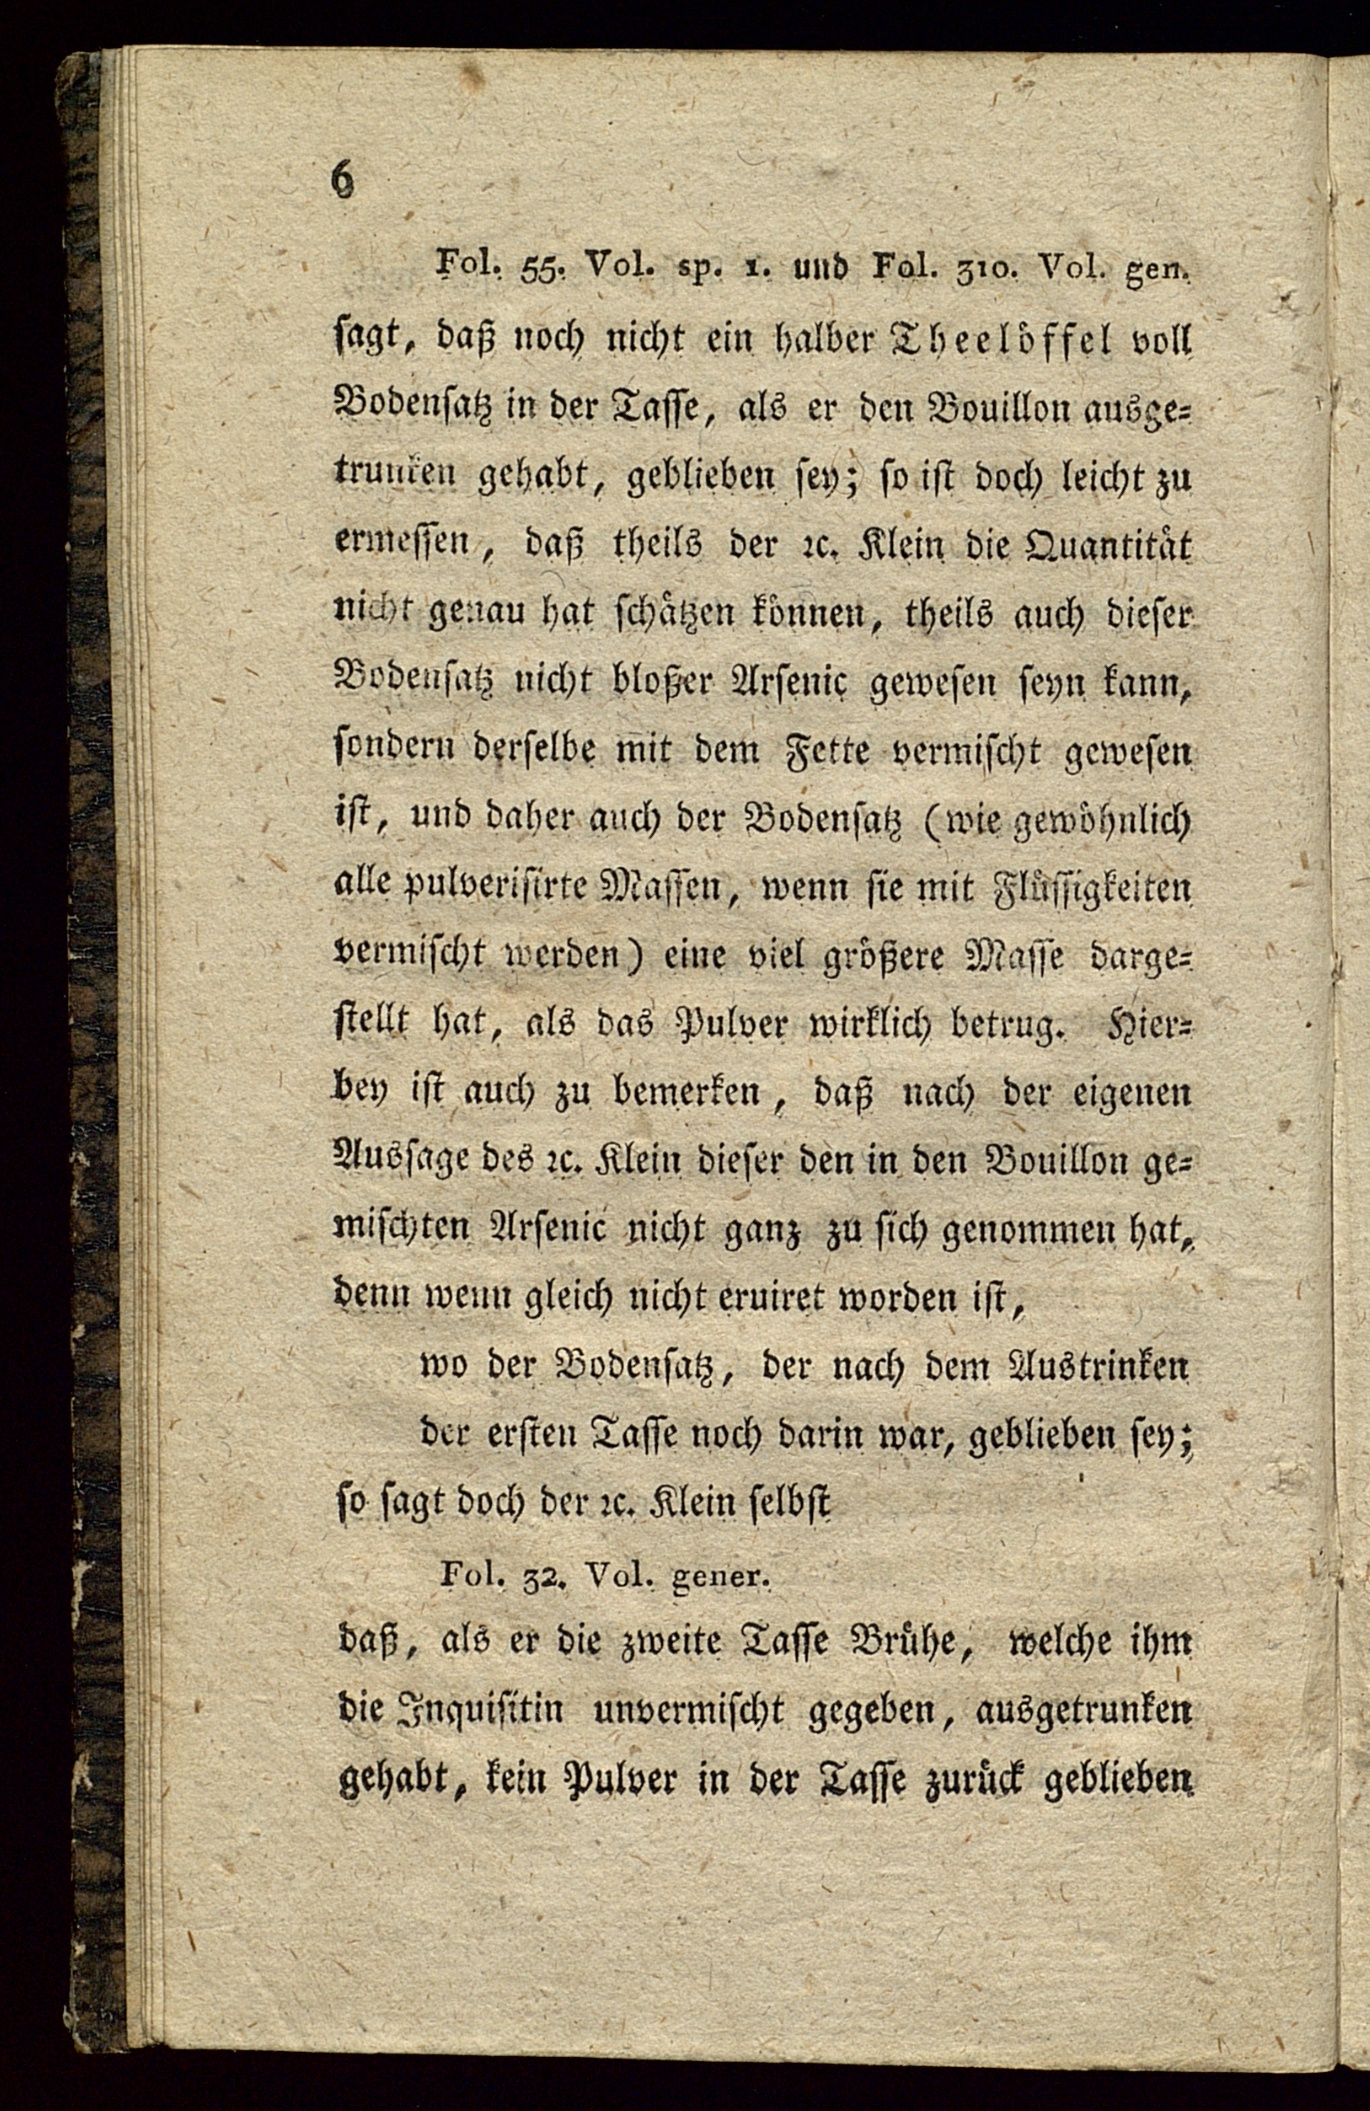 6
Fol. 55. Vol. sp. 1. und Fol. 310. Vol. gen.
sagt, daß noch nicht ein halber Theelöffel voll
Bodensatz in der Tasse, als er den Bouillon ausge-
trunken gehabt, geblieben sey; so ist doch leicht zu
ermessen, daß theils der ꝛc. Klein die Quantität
nicht genau hat schätzen können, theils auch dieser
Bodensatz nicht bloßer Arsenic gewesen seyn kann,
sondern derselbe mit dem Fette vermischt gewesen
ist, und daher auch der Bodensatz (wie gewöhnlich
alle pulverisirte Massen, wenn sie mit Flüssigkeiten
vermischt werden) eine viel größere Masse darge-
stellt hat, als das Pulver wirklich betrug. Hier-
bey ist auch zu bemerken, daß nach der eigenen
Aussage des ꝛc. Klein dieser den in den Bouillon ge-
mischten Arsenic nicht ganz zu sich genommen hat,
denn wenn gleich nicht eruiret worden ist,
wo der Bodensatz, der nach dem Austrinken
der ersten Tasse noch darin war, geblieben sey;
so sagt doch der ꝛc. Klein selbst
Fol. 32. Vol. gener.
daß, als er die zweite Tasse Brühe, welche ihm
die Inquisitin unvermischt gegeben, ausgetrunken
gehabt, kein Pulver in der Tasse zurück geblieben